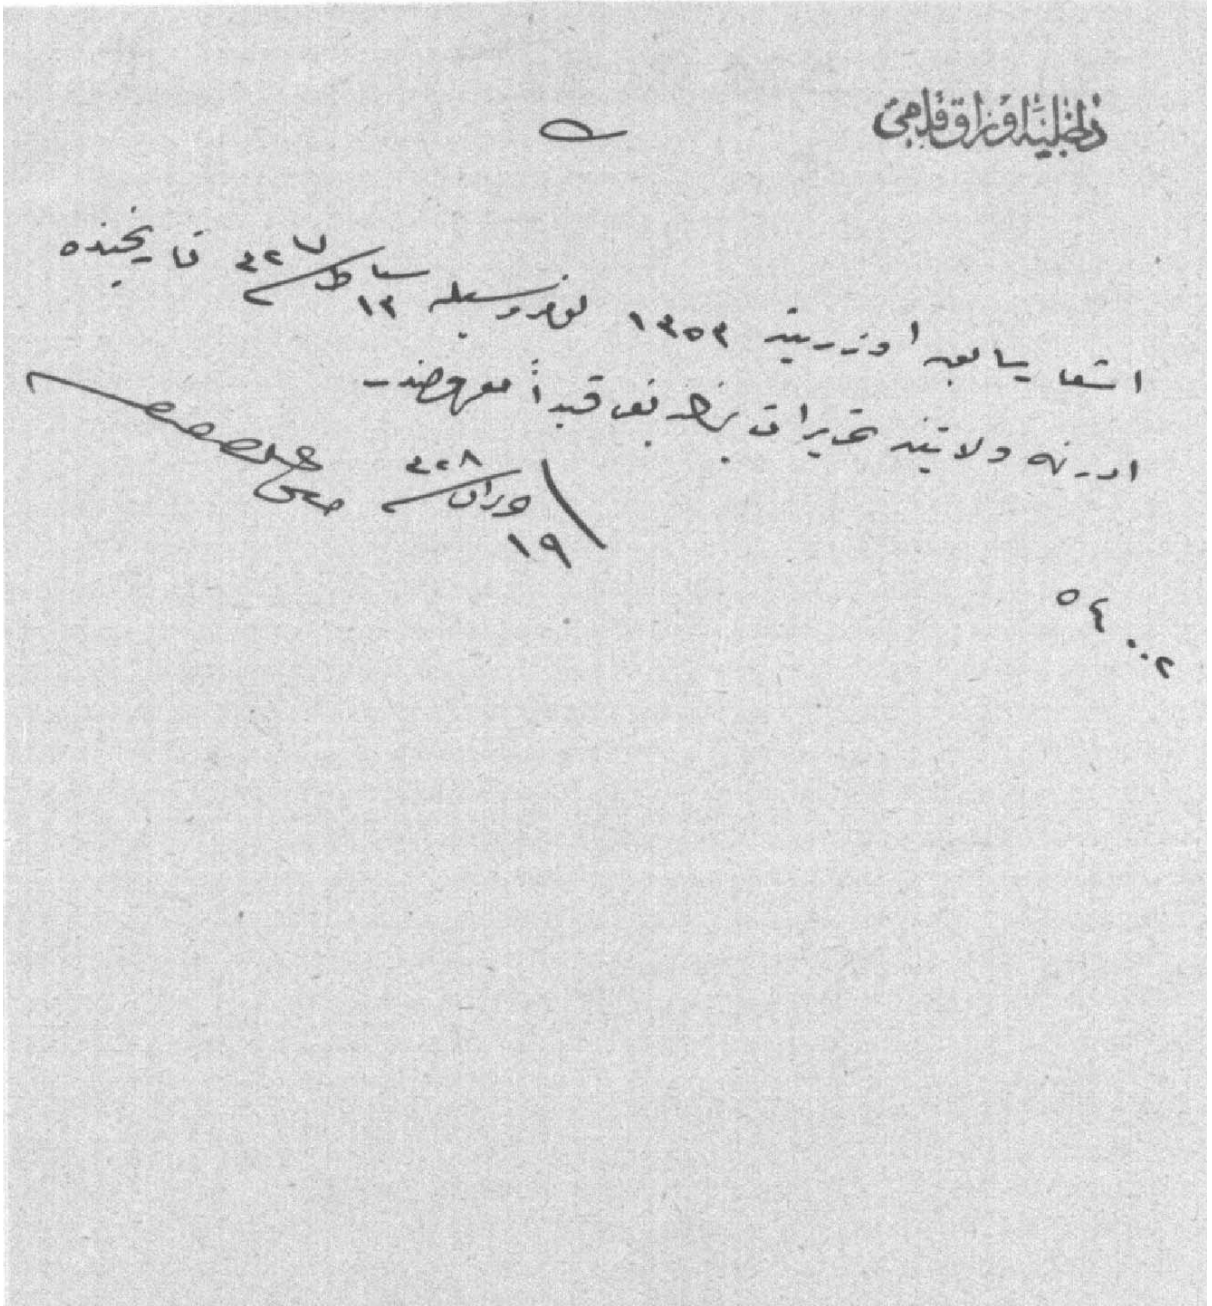 داخلیه اوراق قلمی
اشعار سابق اوزرینه ١٣٥٣ نومروسیله ١٣ شباط ٣٢٧ تاریخنده
ادرنه ولایتنه تحریرات یازلدیغی قیداً معروضدر
١٩ حزیران ٣٢٨
٥٤٠٠٢